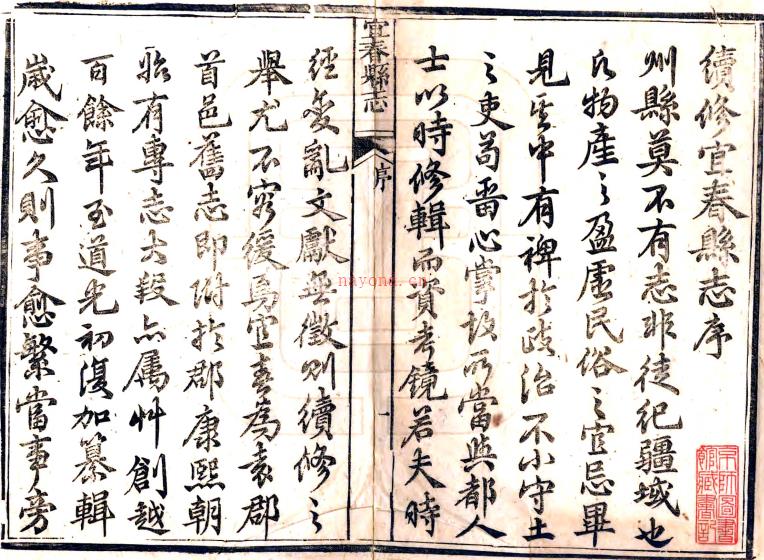 續修宜春縣志序
州縣莫不有志非徒紀疆域也
凡物產之盈虛民俗之宜忌畢
見其中有裨於政治不小守土
之吏苟畱心掌故所當與都人
士以時修輯而資考鏡若夫時
宜春縣志
序
一
經變亂文獻無徵則續修之
舉尤不容緩焉宜春為袁郡
首邑舊志即附於郡康熙朝
始有專志大段亦屬艸創越
百餘年至道光初復加纂輯
歲愈久則事愈繁當事旁
nayona.cn